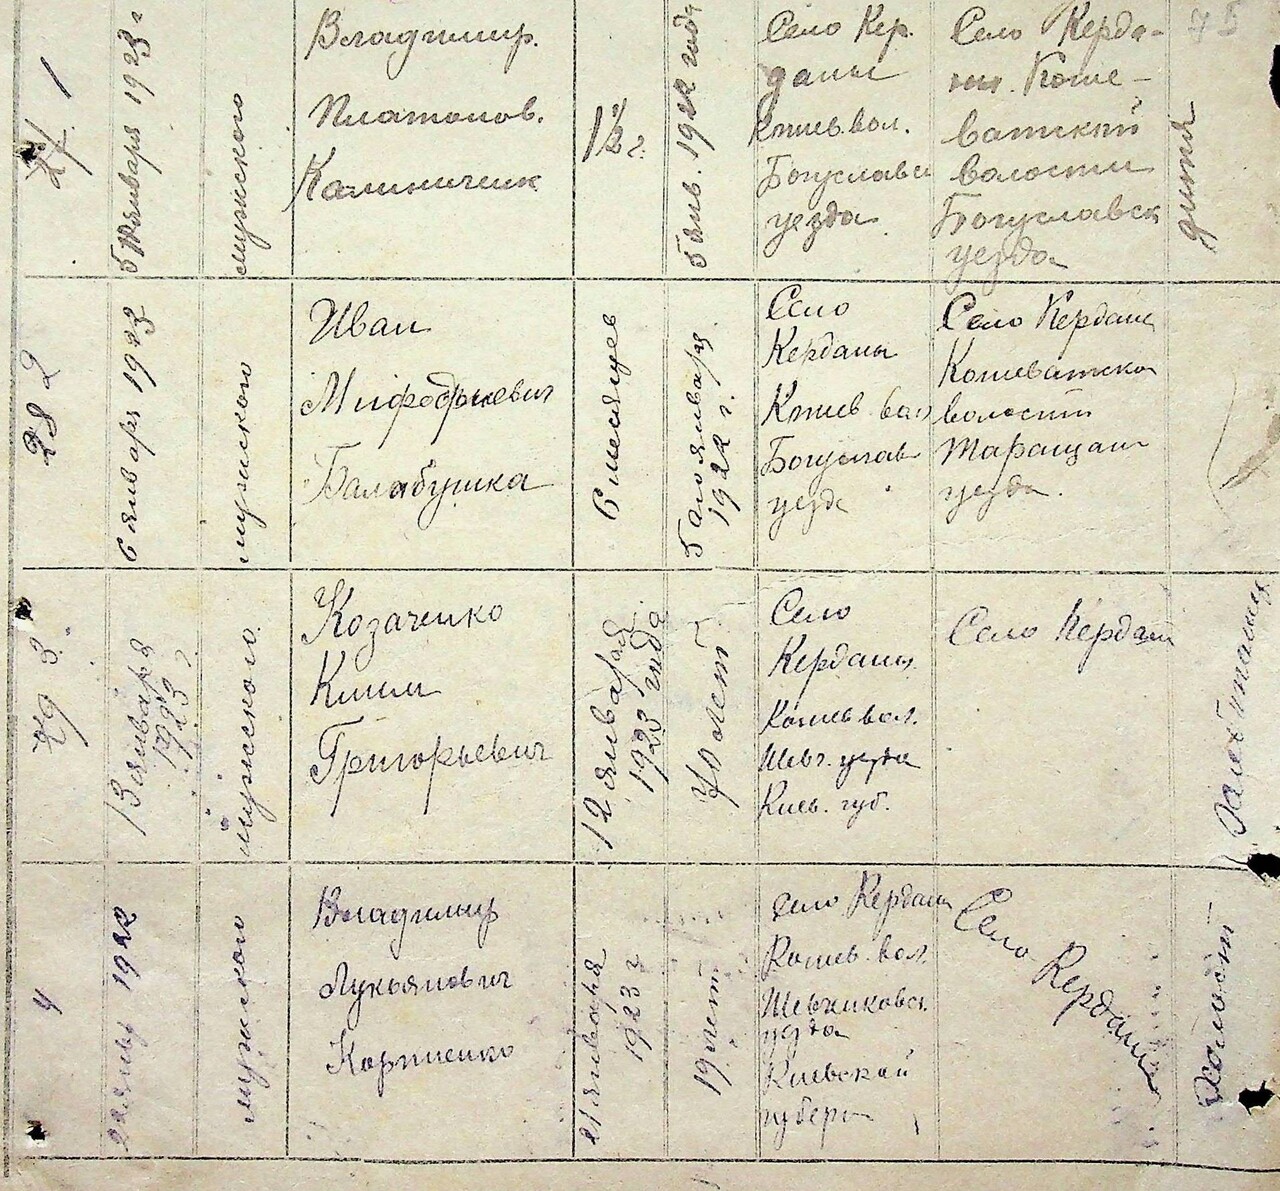 75
1
5 января 1923 г
мужского
Владимир.
Платонов.
Калиниченк
1½ г.
5 янв. 1922 года
Село Кер.
даны
Кошев. вол.
Богуславск
уезда
Село Керда-
ны. Коше-
ватской
волости
Богуславск
уезда
дитя
28 2
6 января 1923
мужского
Иван
Мифодиевич
Балабушка
6 месяцев
5 ого января
1922 г.
Село
Керданы
Кошев вол
Богуслав
уезда
Село Кердан
Кошеватско
волости
Таращан
уезда.
29 3.
13 января
1923 г
мужского.
Козаченко
Клим
Григорьевич
12 января
1923 года
лет
Село
Керданы
Кошев вол.
Шевч. уезда
Киев. губ.
Село Кердан
4
22 янв 1922
мужского
Владимир
Лукьянович
Корниенко
21 января
1923 г
19 лет
Село Кердан
Кошев. вол.
Шевченковск.
уезда
Киевской
губерн
Село Керданы
Холост